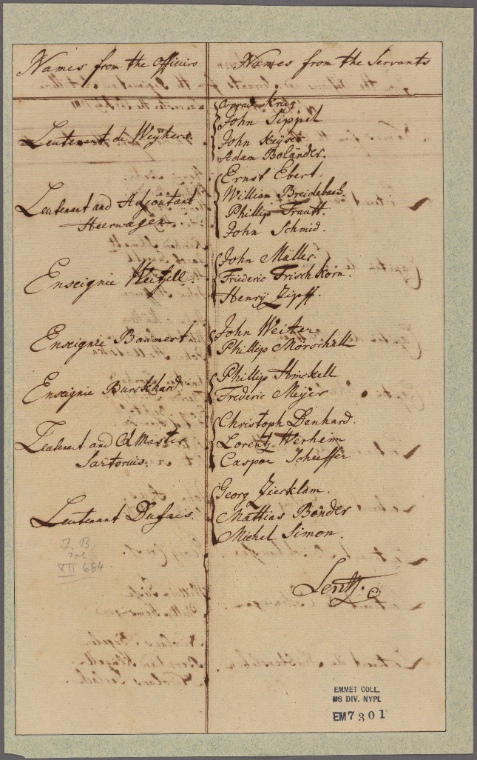 Names from the Officirs
Names from the Servants
Leutenant de Weÿhers
Conrad Krieg
John Sippel
John Keyser
Adam Boländer.
Leutenant and Adjoutant
Heerwagen
Ernst Ebert.
William Breidebach
Phillip Trautt.
John Schmid.
Enseignie Weitzell.
John Müller
Frideric Frisch Korn
Henrÿ Zipff.
Enseignie Baumert
John Weitter
Phillip Mörschall
Enseignie Burckhard
Phillip Hinckell
Frederic Meÿer
Leutenant and Q Master
Sartorius.
Christoph Denhard.
Lorentz Herheim
Caspar Scheffer
Leutenant Dufais.
Georg Zicklam.
Mathias Bänder
Michel Simon.
Lentz.
XII 684
EMMET COLL.
MS DIV. NYPL
EM7301